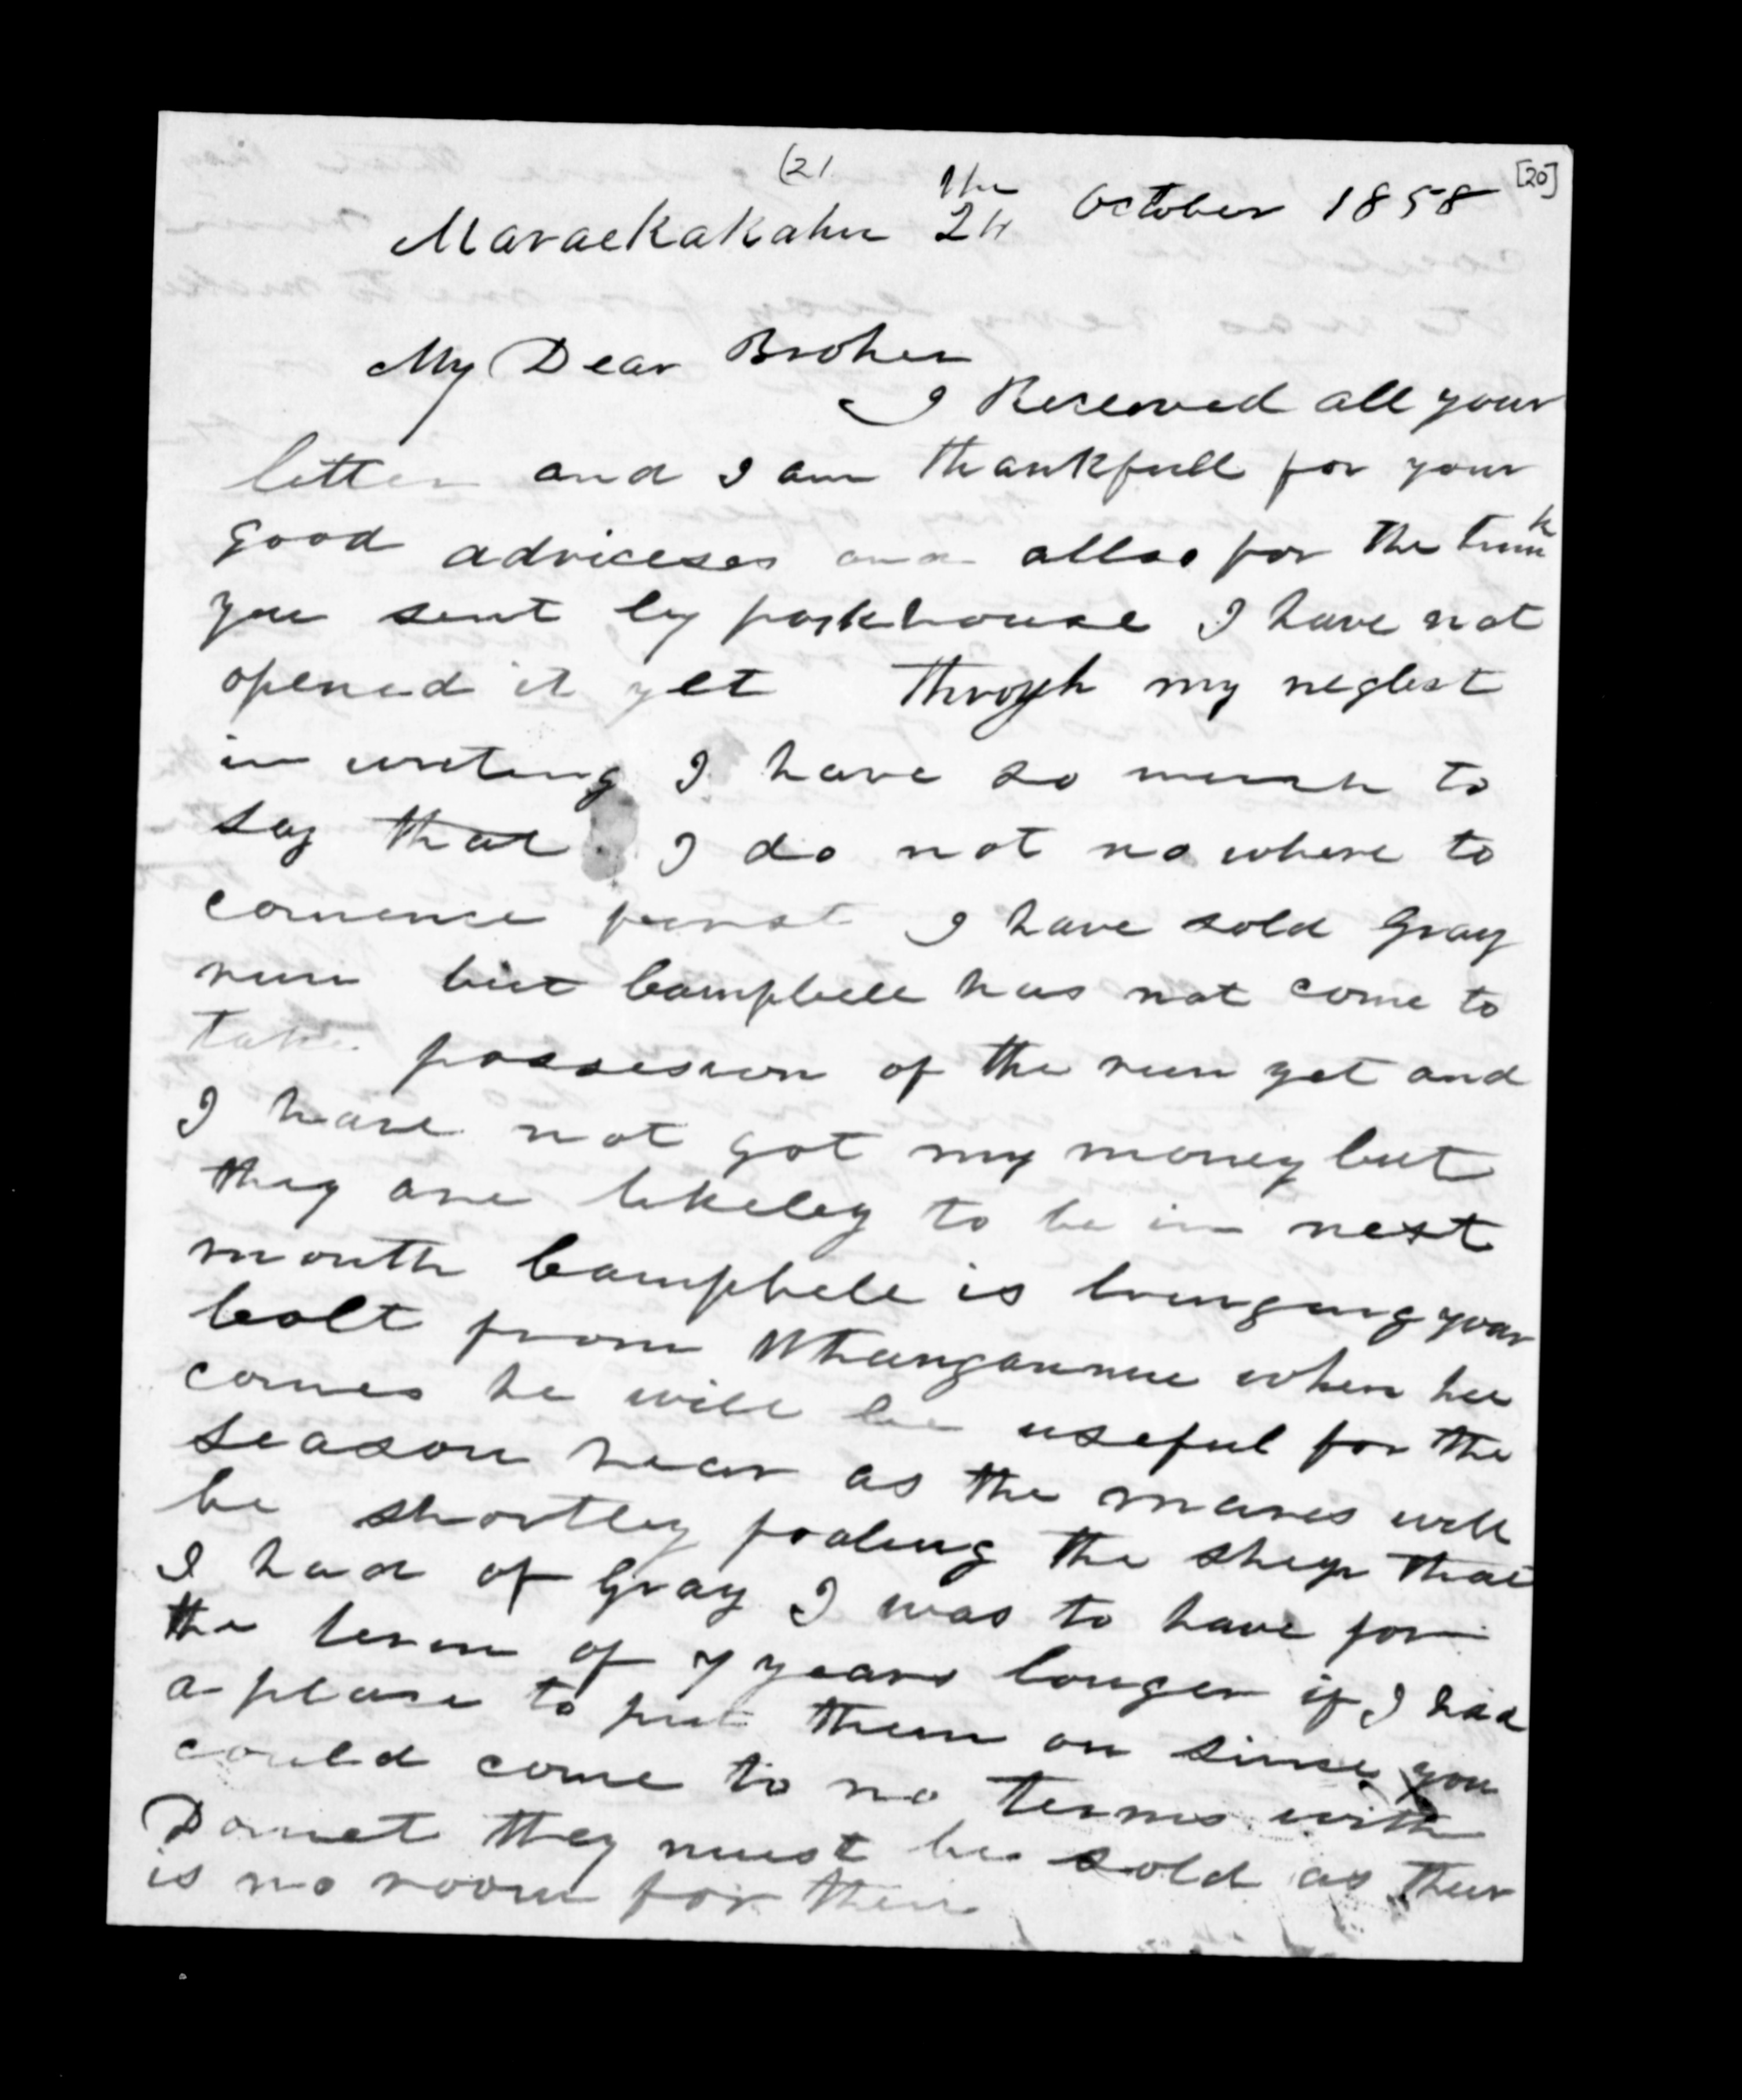 (21
[20]
Maraekakahu 24 the October 1858
My Dear Brother
I Receved all your
letter and I am thankfull for your
good adviceses and allso for the trunk
you sent by parkhouse I have not
opened it yet throygh my neglect
in writing I have so much to
say that I do not no where to
comence furst I have sold Gray
run but Campbell has not come to
take possesion of the run yet and
I have not got my money but
they are likeley to be in next
month Campbele is bringing your
bolt from Whanganue when hee
comes he will be useful for the
season hear as the mares will
be shortley foaling the sheep that
I had of Gray I was to have for
the term of 7 years longer if I had
a plase to put them on since you
could come to no terms with
Domet they must be sold as their
is no room for them